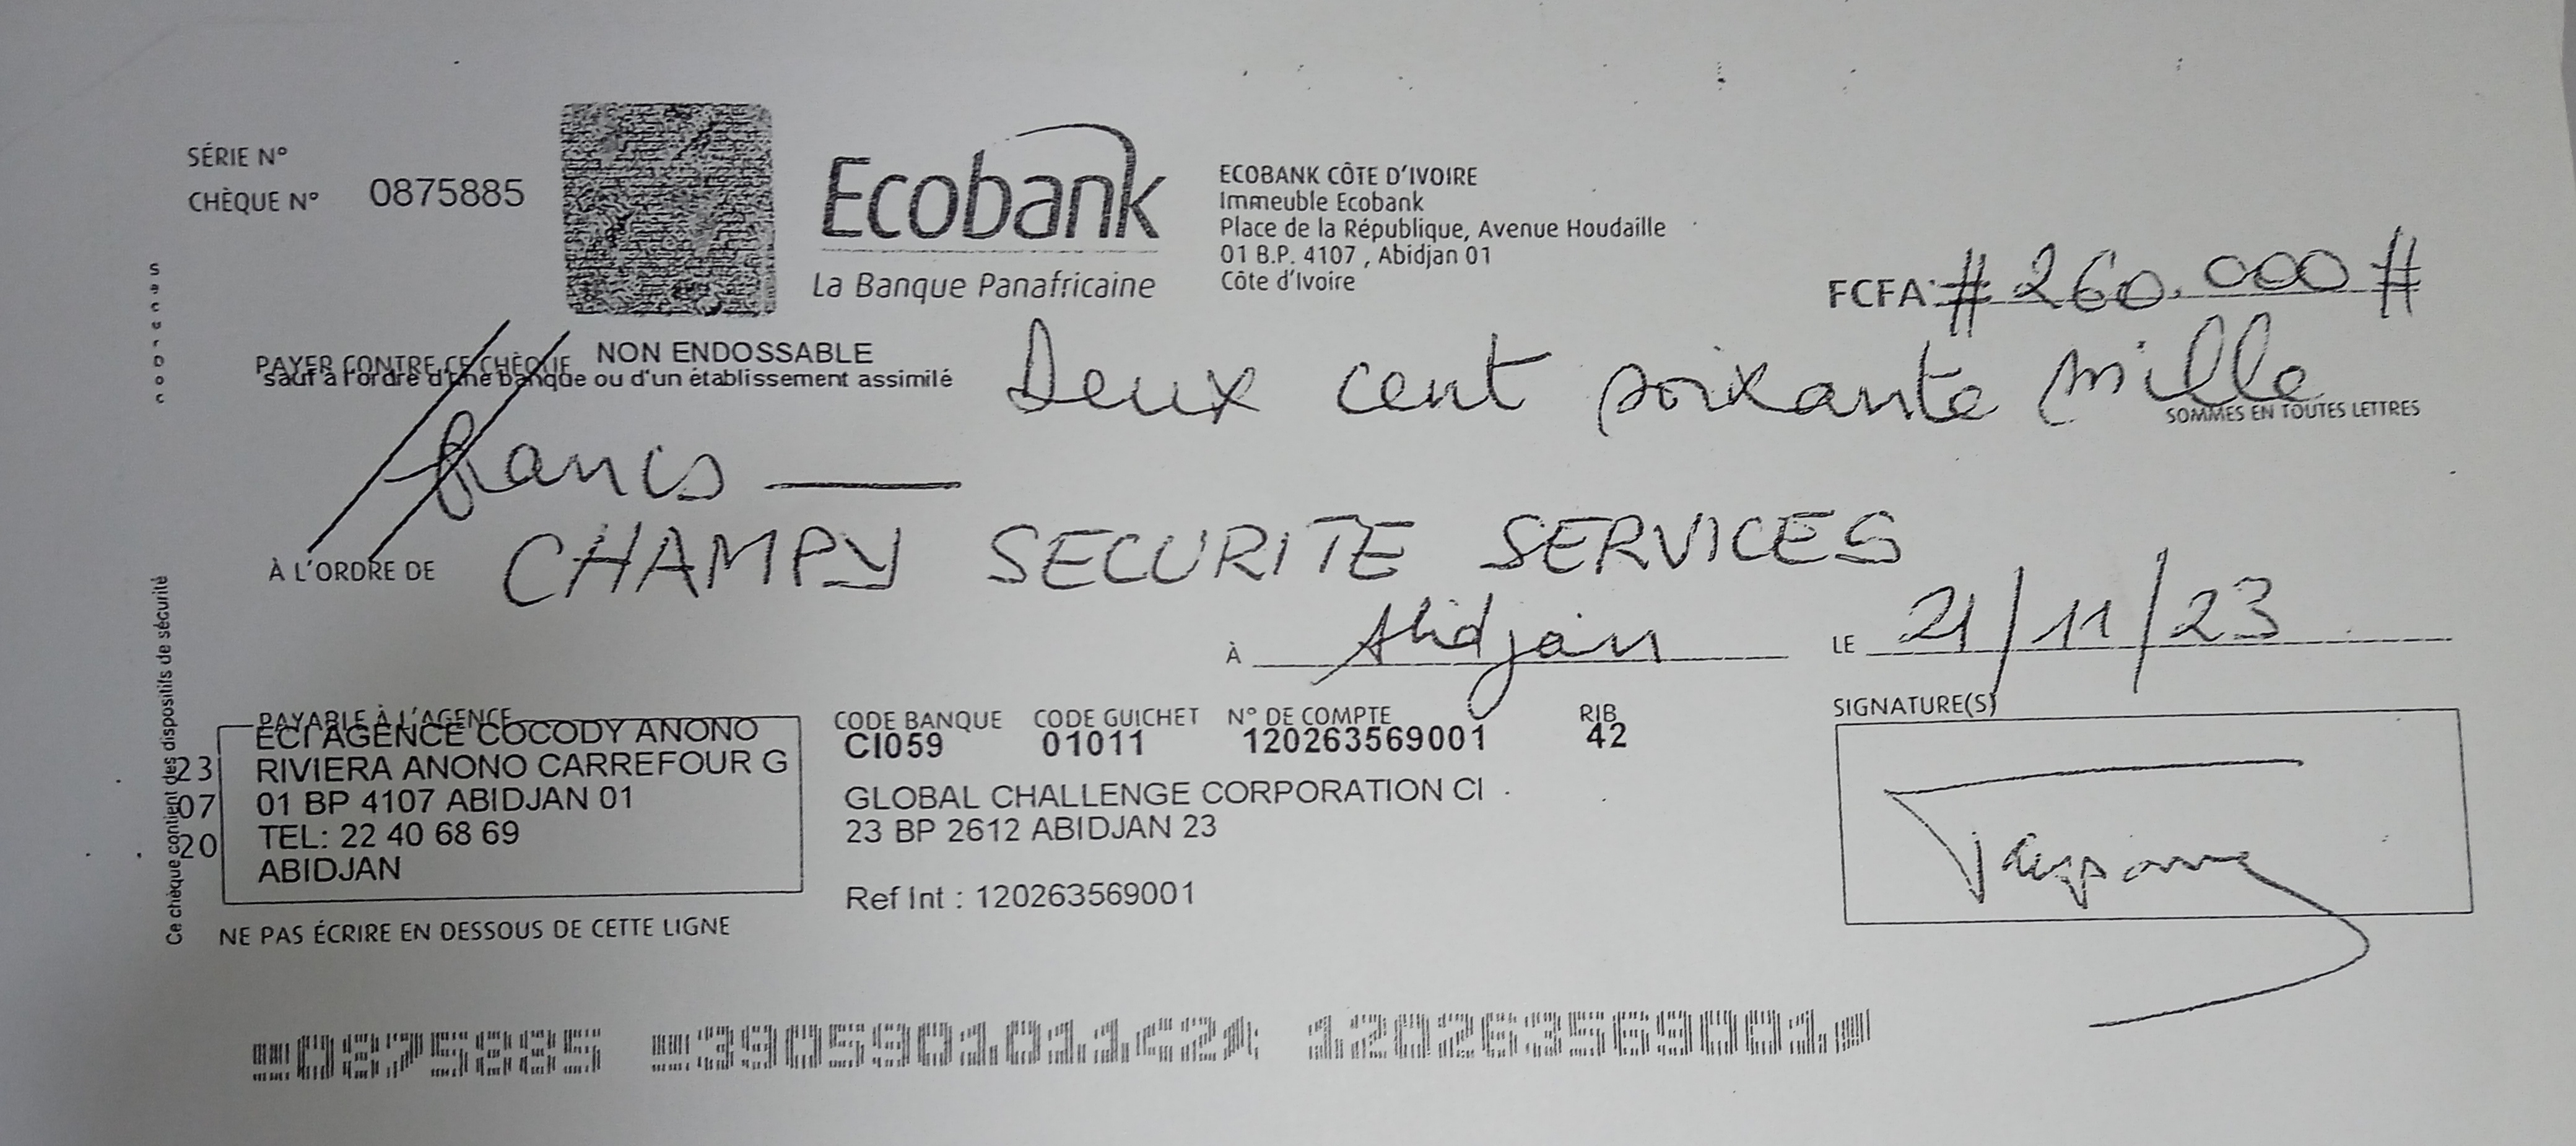 SÉRIE N°
CHÈQUE N° 0875885
Ecobank
La Banque Panafricaine
ECOBANK CÔTE D'IVOIRE
Immeuble Ecobank
Place de la République, Avenue Houdaille
01 B.P. 4107 , Abidjan 01
Côte d'Ivoire
FCFA # 260.000 #
SecurDoc
PAYER CONTRE CE CHÈQUE NON ENDOSSABLE
sauf à l'ordre d'une banque ou d'un établissement assimilé
Deux cent soixante mille
SOMMES EN TOUTES LETTRES
francs
À L'ORDRE DE CHAMPY SECURITE SERVICES
À Abidjan LE 21/11/23
Ce chèque contient des dispositifs de sécurité
23
07
20
PAYABLE À L'AGENCE
ECI AGENCE COCODY ANONO
RIVIERA ANONO CARREFOUR G
01 BP 4107 ABIDJAN 01
TEL: 22 40 68 69
ABIDJAN
CODE BANQUE CODE GUICHET N° DE COMPTE RIB
CI059 01011 120263569001 42
GLOBAL CHALLENGE CORPORATION CI
23 BP 2612 ABIDJAN 23
Ref Int : 120263569001
SIGNATURE(S)
NE PAS ÉCRIRE EN DESSOUS DE CETTE LIGNE
0875885 390590101142 120263569001